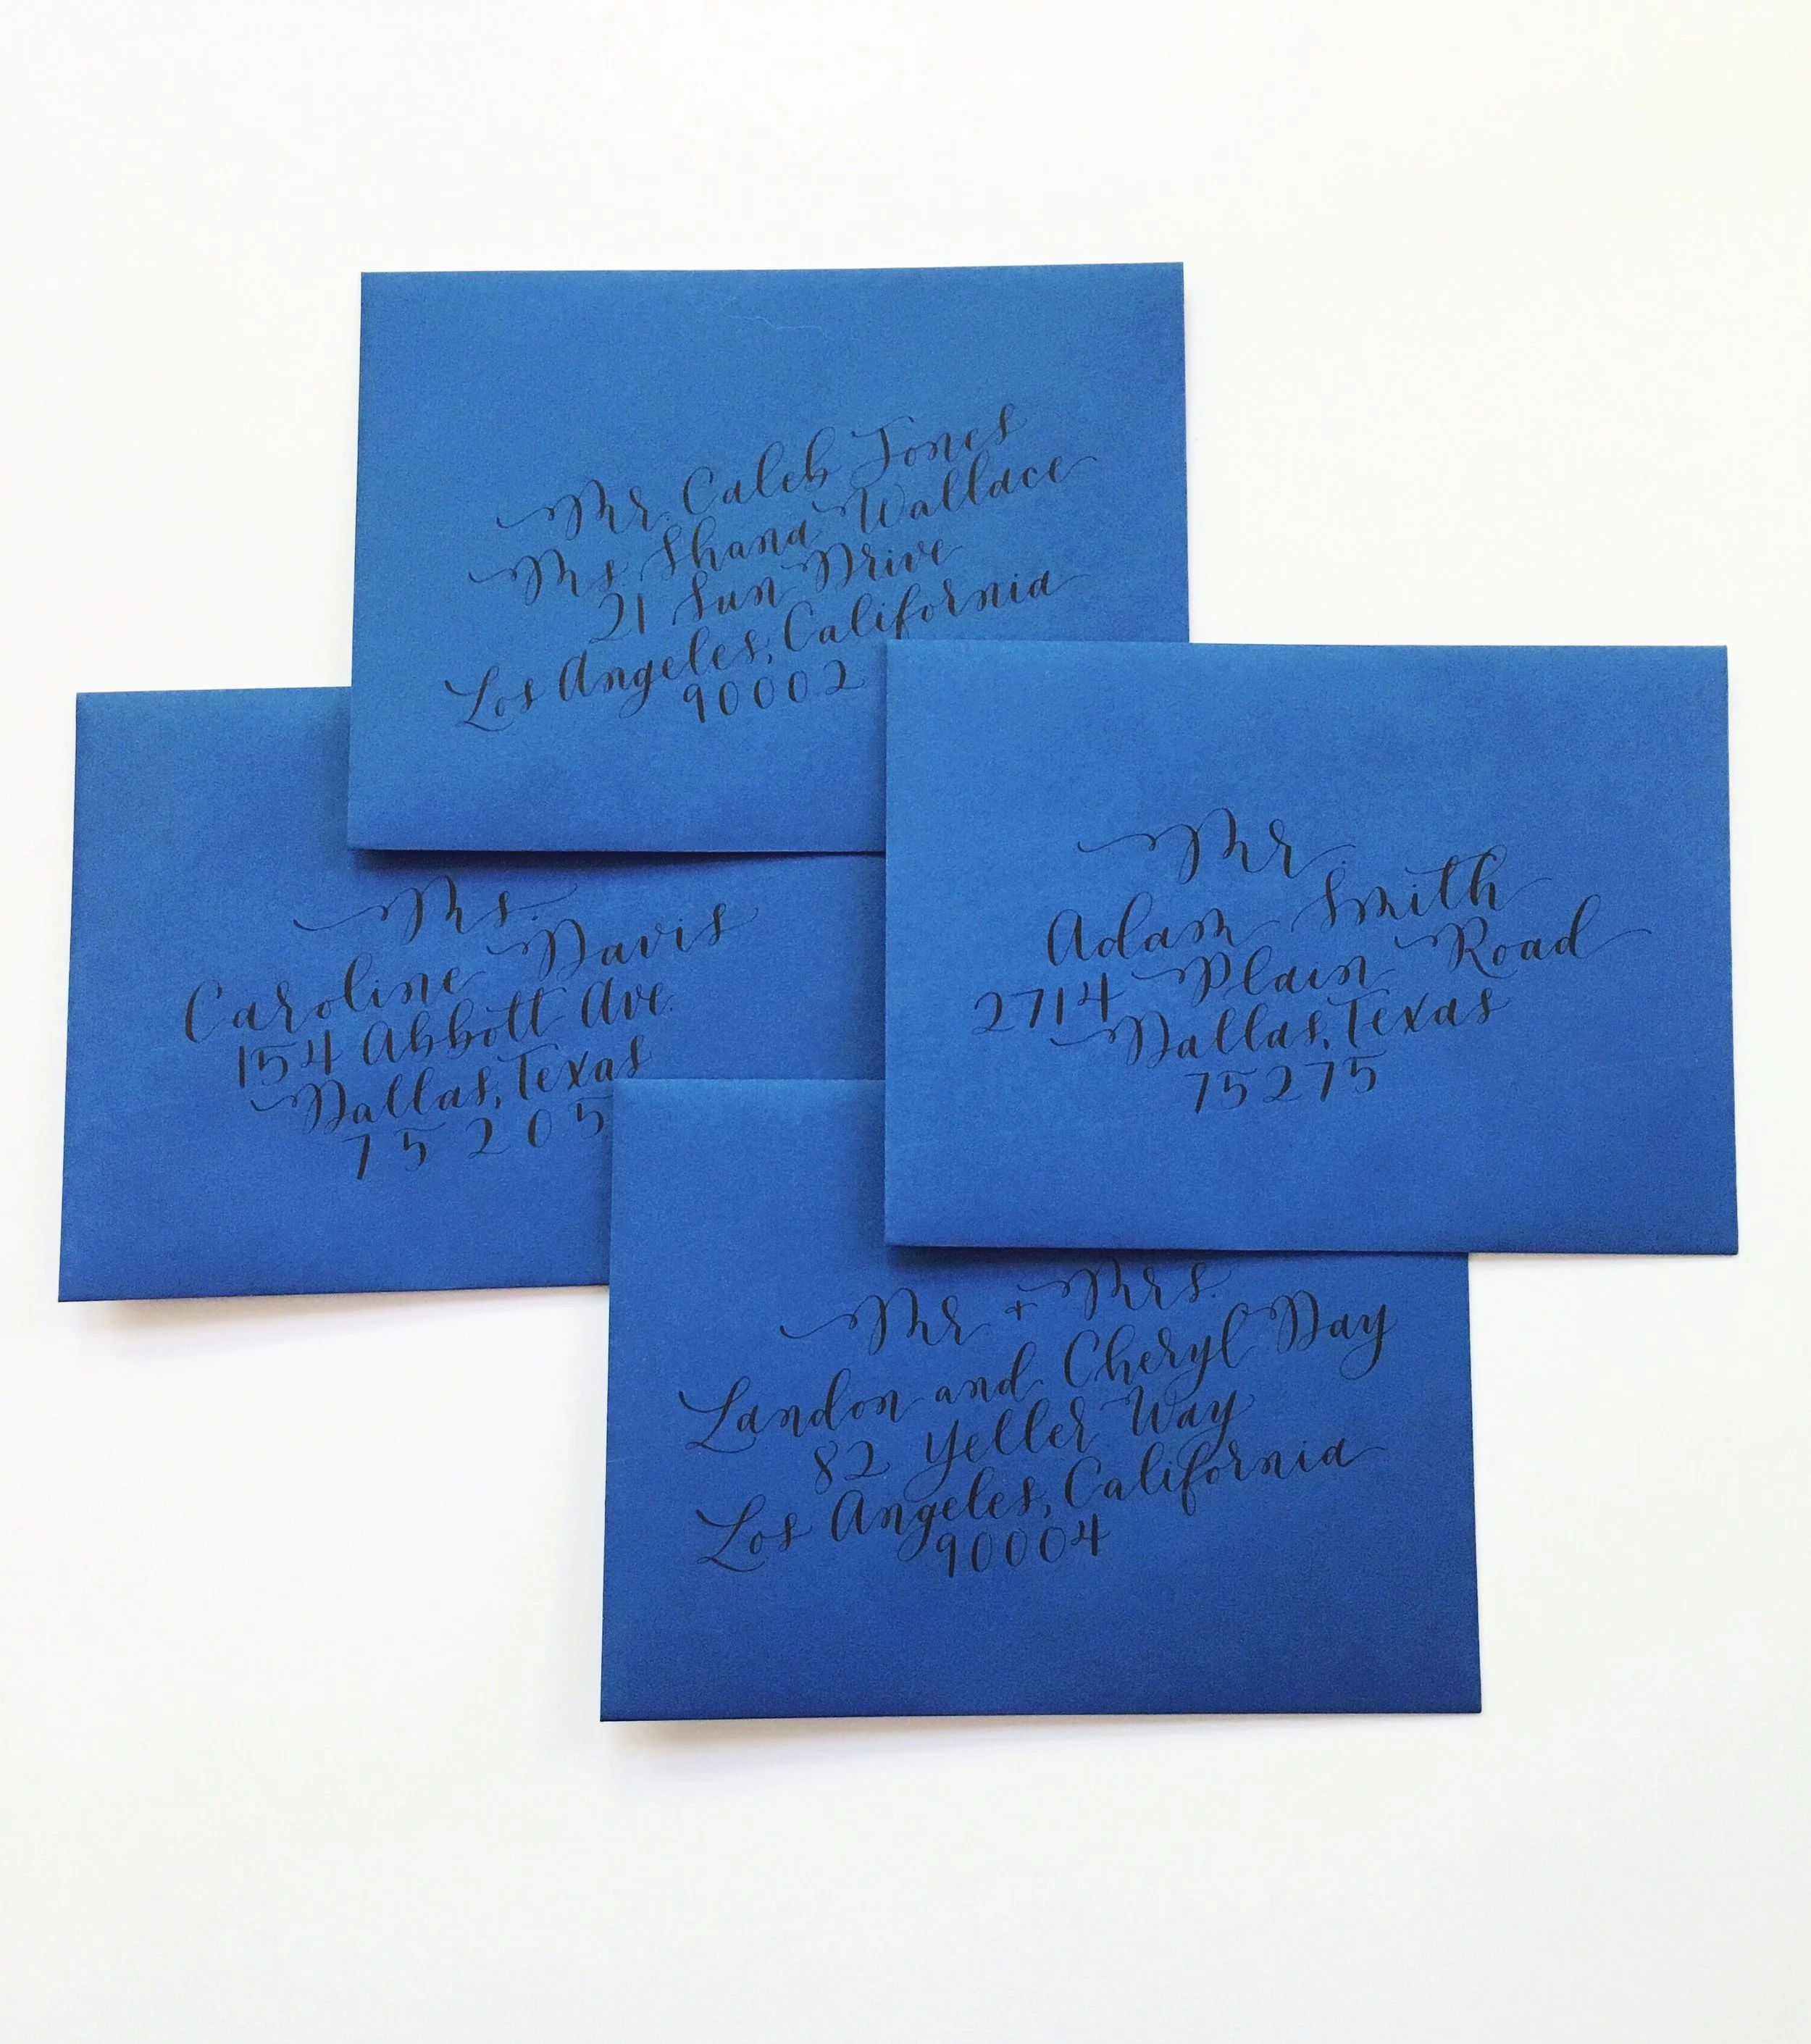 Mr. Caleb Jones
Ms. Shana Wallace
21 Sun Drive
Los Angeles, California
90002
Ms.
Caroline Davis
154 Abbott Ave.
Dallas, Texas
75205
Mr.
Adam Smith
2714 Plain Road
Dallas, Texas
75275
Mr + Mrs.
Landon and Cheryl Day
82 Yeller Way
Los Angeles, California
90004